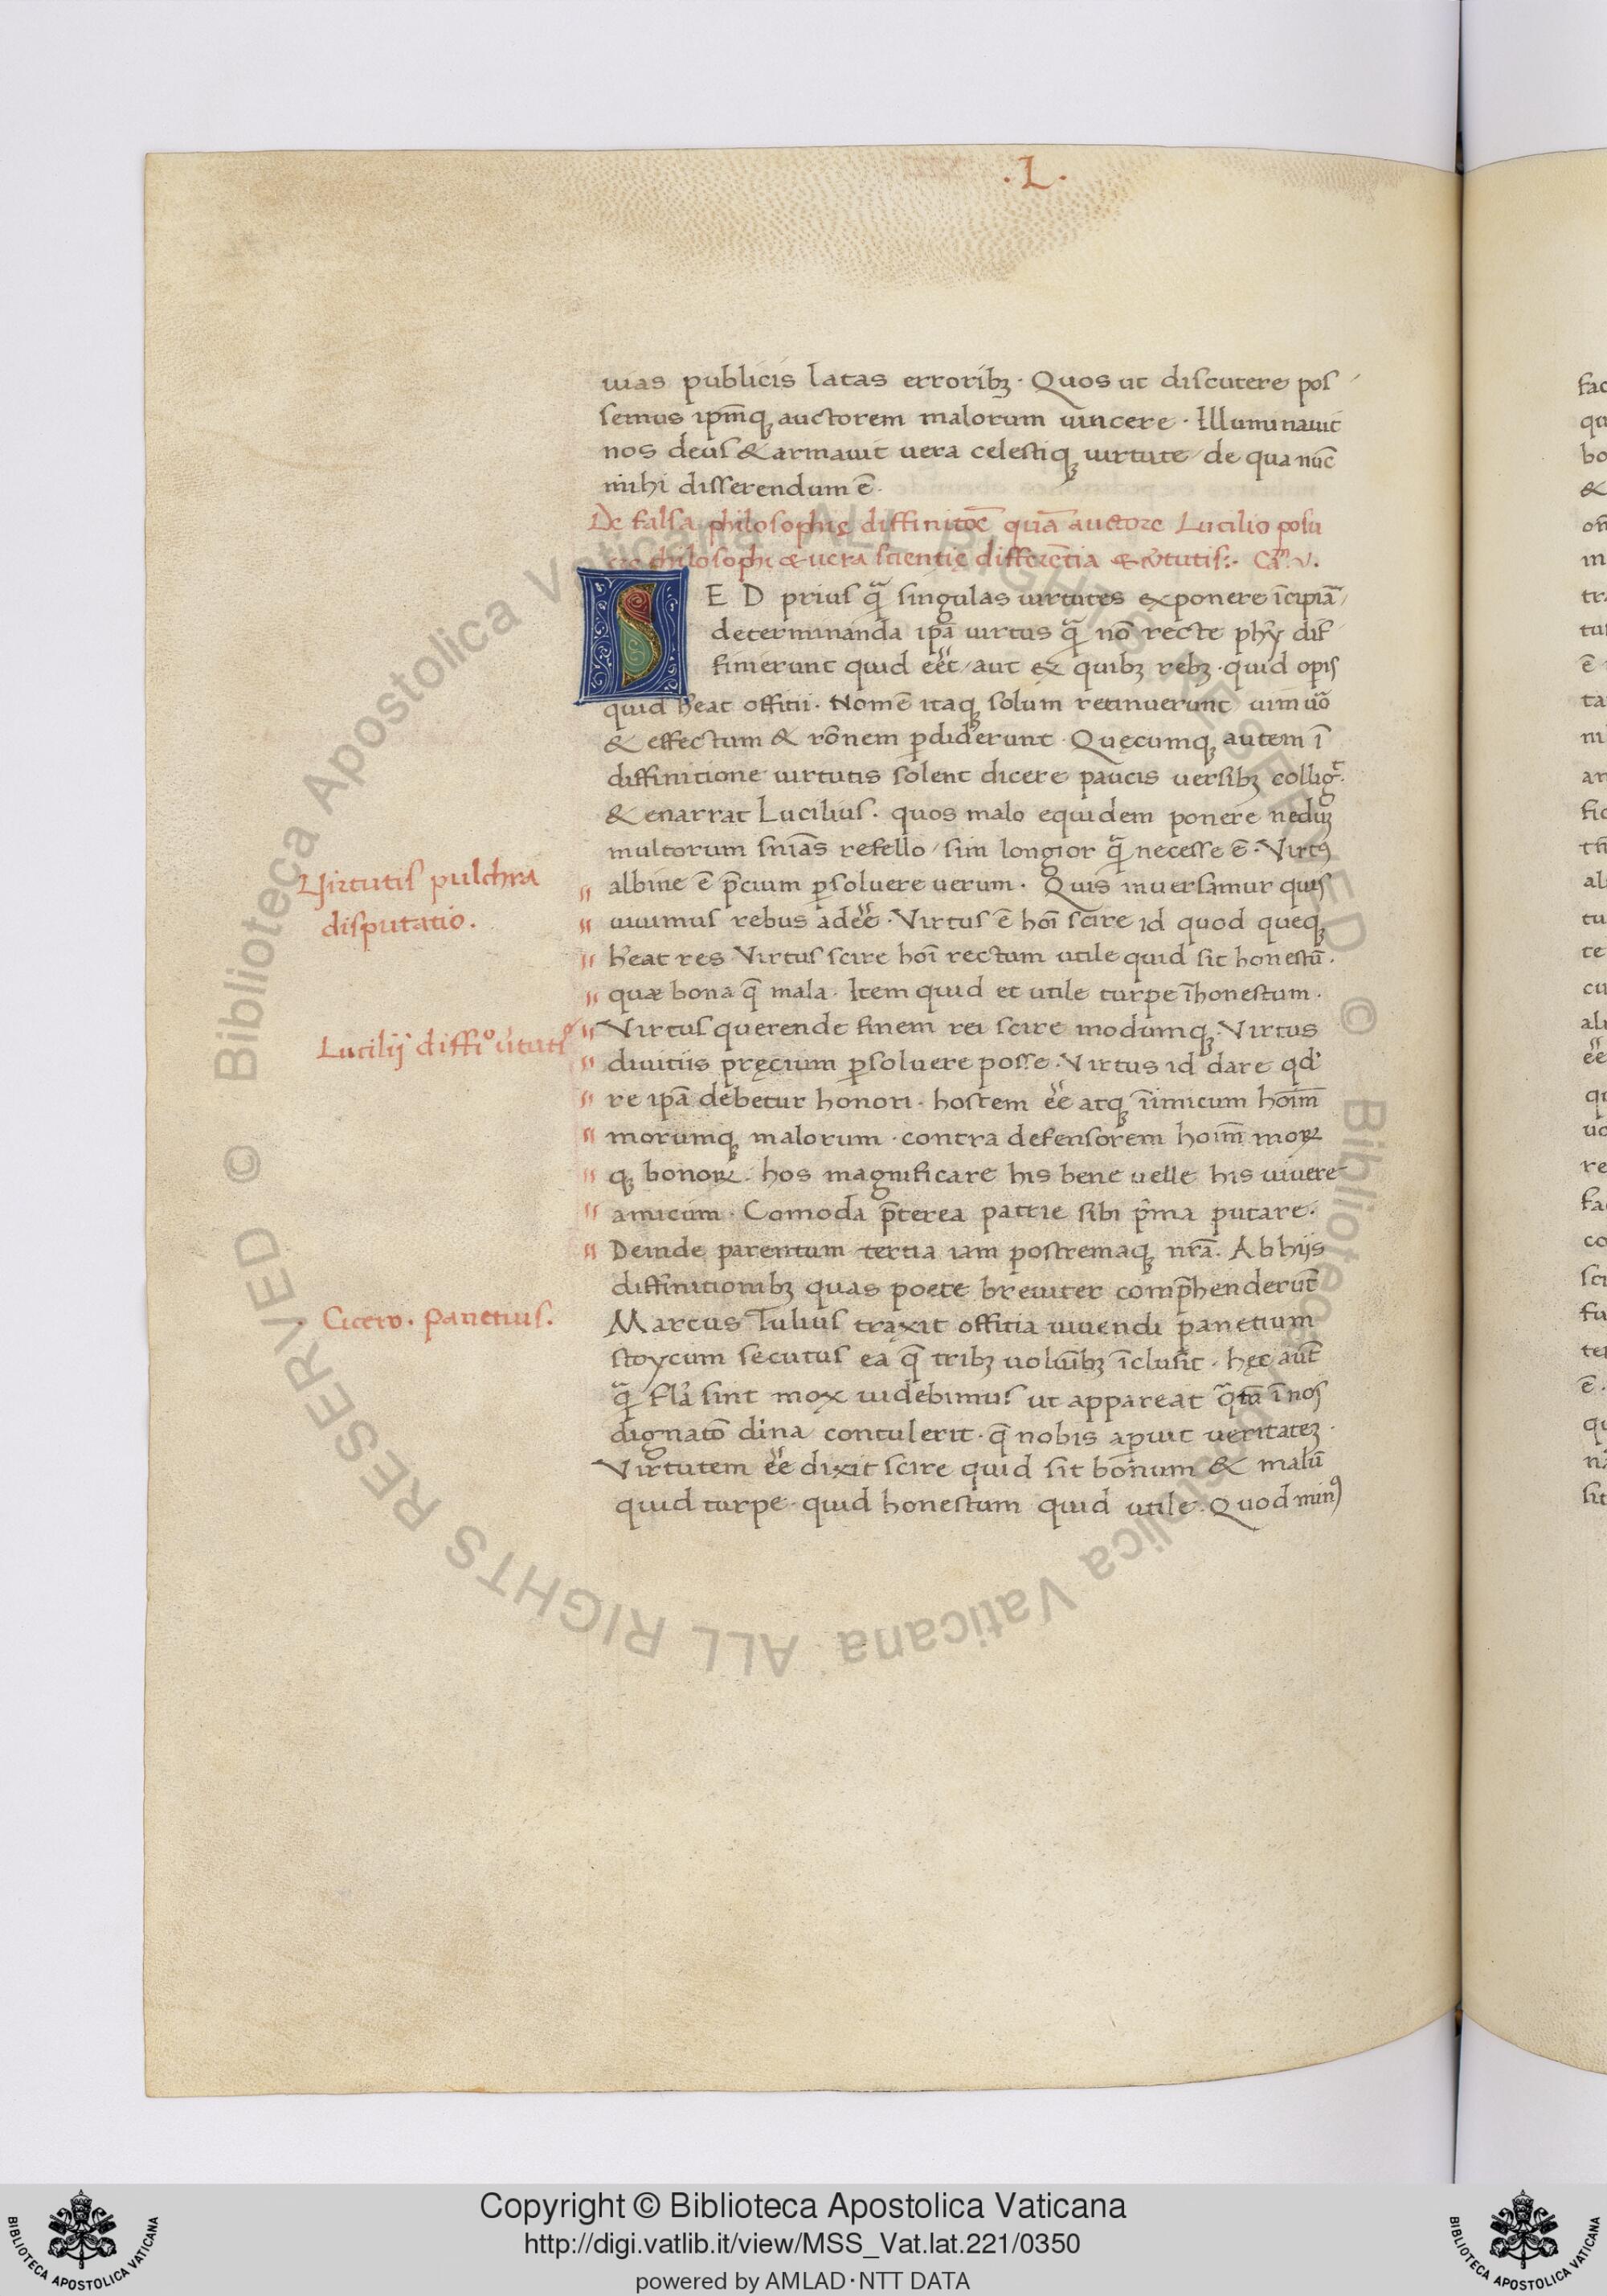 .L.
uias publicis latas erroribꝫ · Quos ut discutere pos
semus ip̄mqꝫ auctorem malorum uincere · Illuminauit
nos deus & armauit uera celestiqꝫ uirtute de qua nūc
mihi disserendum ē ·
De falsa philosophię diffinitōe quā auctore Lucilio posu
ere philosophi & uera scientię differētia & v̓tutis:· Cam̄. V.
SED prius qᷓ singulas uirtutes exponere īcipiā
determinanda ip̄a uirtus qᷓ nō recte phỹ dif
finierunt quid eēt aut ex quibꝫ rebꝫ · quid opis
quid h̓eat offitii · Nomē itaqꝫ solum retinuerunt uim uō
& effectum & rōnem ꝑdiderunt · Quęcumqꝫ autem ī
diffinitione uirtutis solent dicere paucis uersibꝫ colligᷓ·
& enarrat Lucilius · quos malo equidem ponere neduꝫ
multorum sn̄ias refello sim longior qᷓ necesse ē · Virtꝰ
albine ē p̄cium ꝑsoluere uerum · Quis inuersamur quis
uiuimus rebus adeē · Virtus ē hoī scire id quod queqꝫ
h̓eat res Virtus scire hoī rectum utile quid sit honestū ·
quæ bona q̄ mala · Item quid et utile turpe īhonestum ·
Virtus querende finem rei scire modumqꝫ · Virtus
diuitiis pręcium ꝑsoluere posse · Virtus id dare qd̓
re ipā debetur honori · hostem eē atqꝫ īimicum hoīm
morumqꝫ malorum · contra defensorem hoīm moꝝ
qꝫ bonoꝝ · hos magnificare his bene uelle his uiuere
amicum · Comoda p̄terea patrie sibi p̓ma putare ·
Deinde parentum tertia iam postremaqꝫ nr̄a · Ab hijs
diffinitionibꝫ quas poete breuiter comp̄henderūt
Marcus Tulius traxit offitia uiuendi panetium
stoycum secutus ea q̄ tribꝫ uolūibꝫ īclusit · hęc aūt
qᷓ fl̓a sint mox uidebimus ut appareat qᷓtū ī nos
dignatō diīna contulerit · q̄ nobis apuit ueritateꝫ ·
Virtutem eē dixit scire quid sit bonum & malū
quid turpe · quid honestum quid utile · Quod minꝰ
Uirtutis pulchra
disputatio.
Lucilij diffiᵒ v̓tutis
Cicero. Panetius.
© Biblioteca Apostolica Vaticana ALL RIGHTS RESERVED © Biblioteca Apostolica Vaticana ALL RIGHTS RESERVED
Copyright © Biblioteca Apostolica Vaticana
http://digi.vatlib.it/view/MSS_Vat.lat.221/0350
powered by AMLAD·NTT DATA
BIBLIOTECA APOSTOLICA VATICANA
BIBLIOTECA APOSTOLICA VATICANA